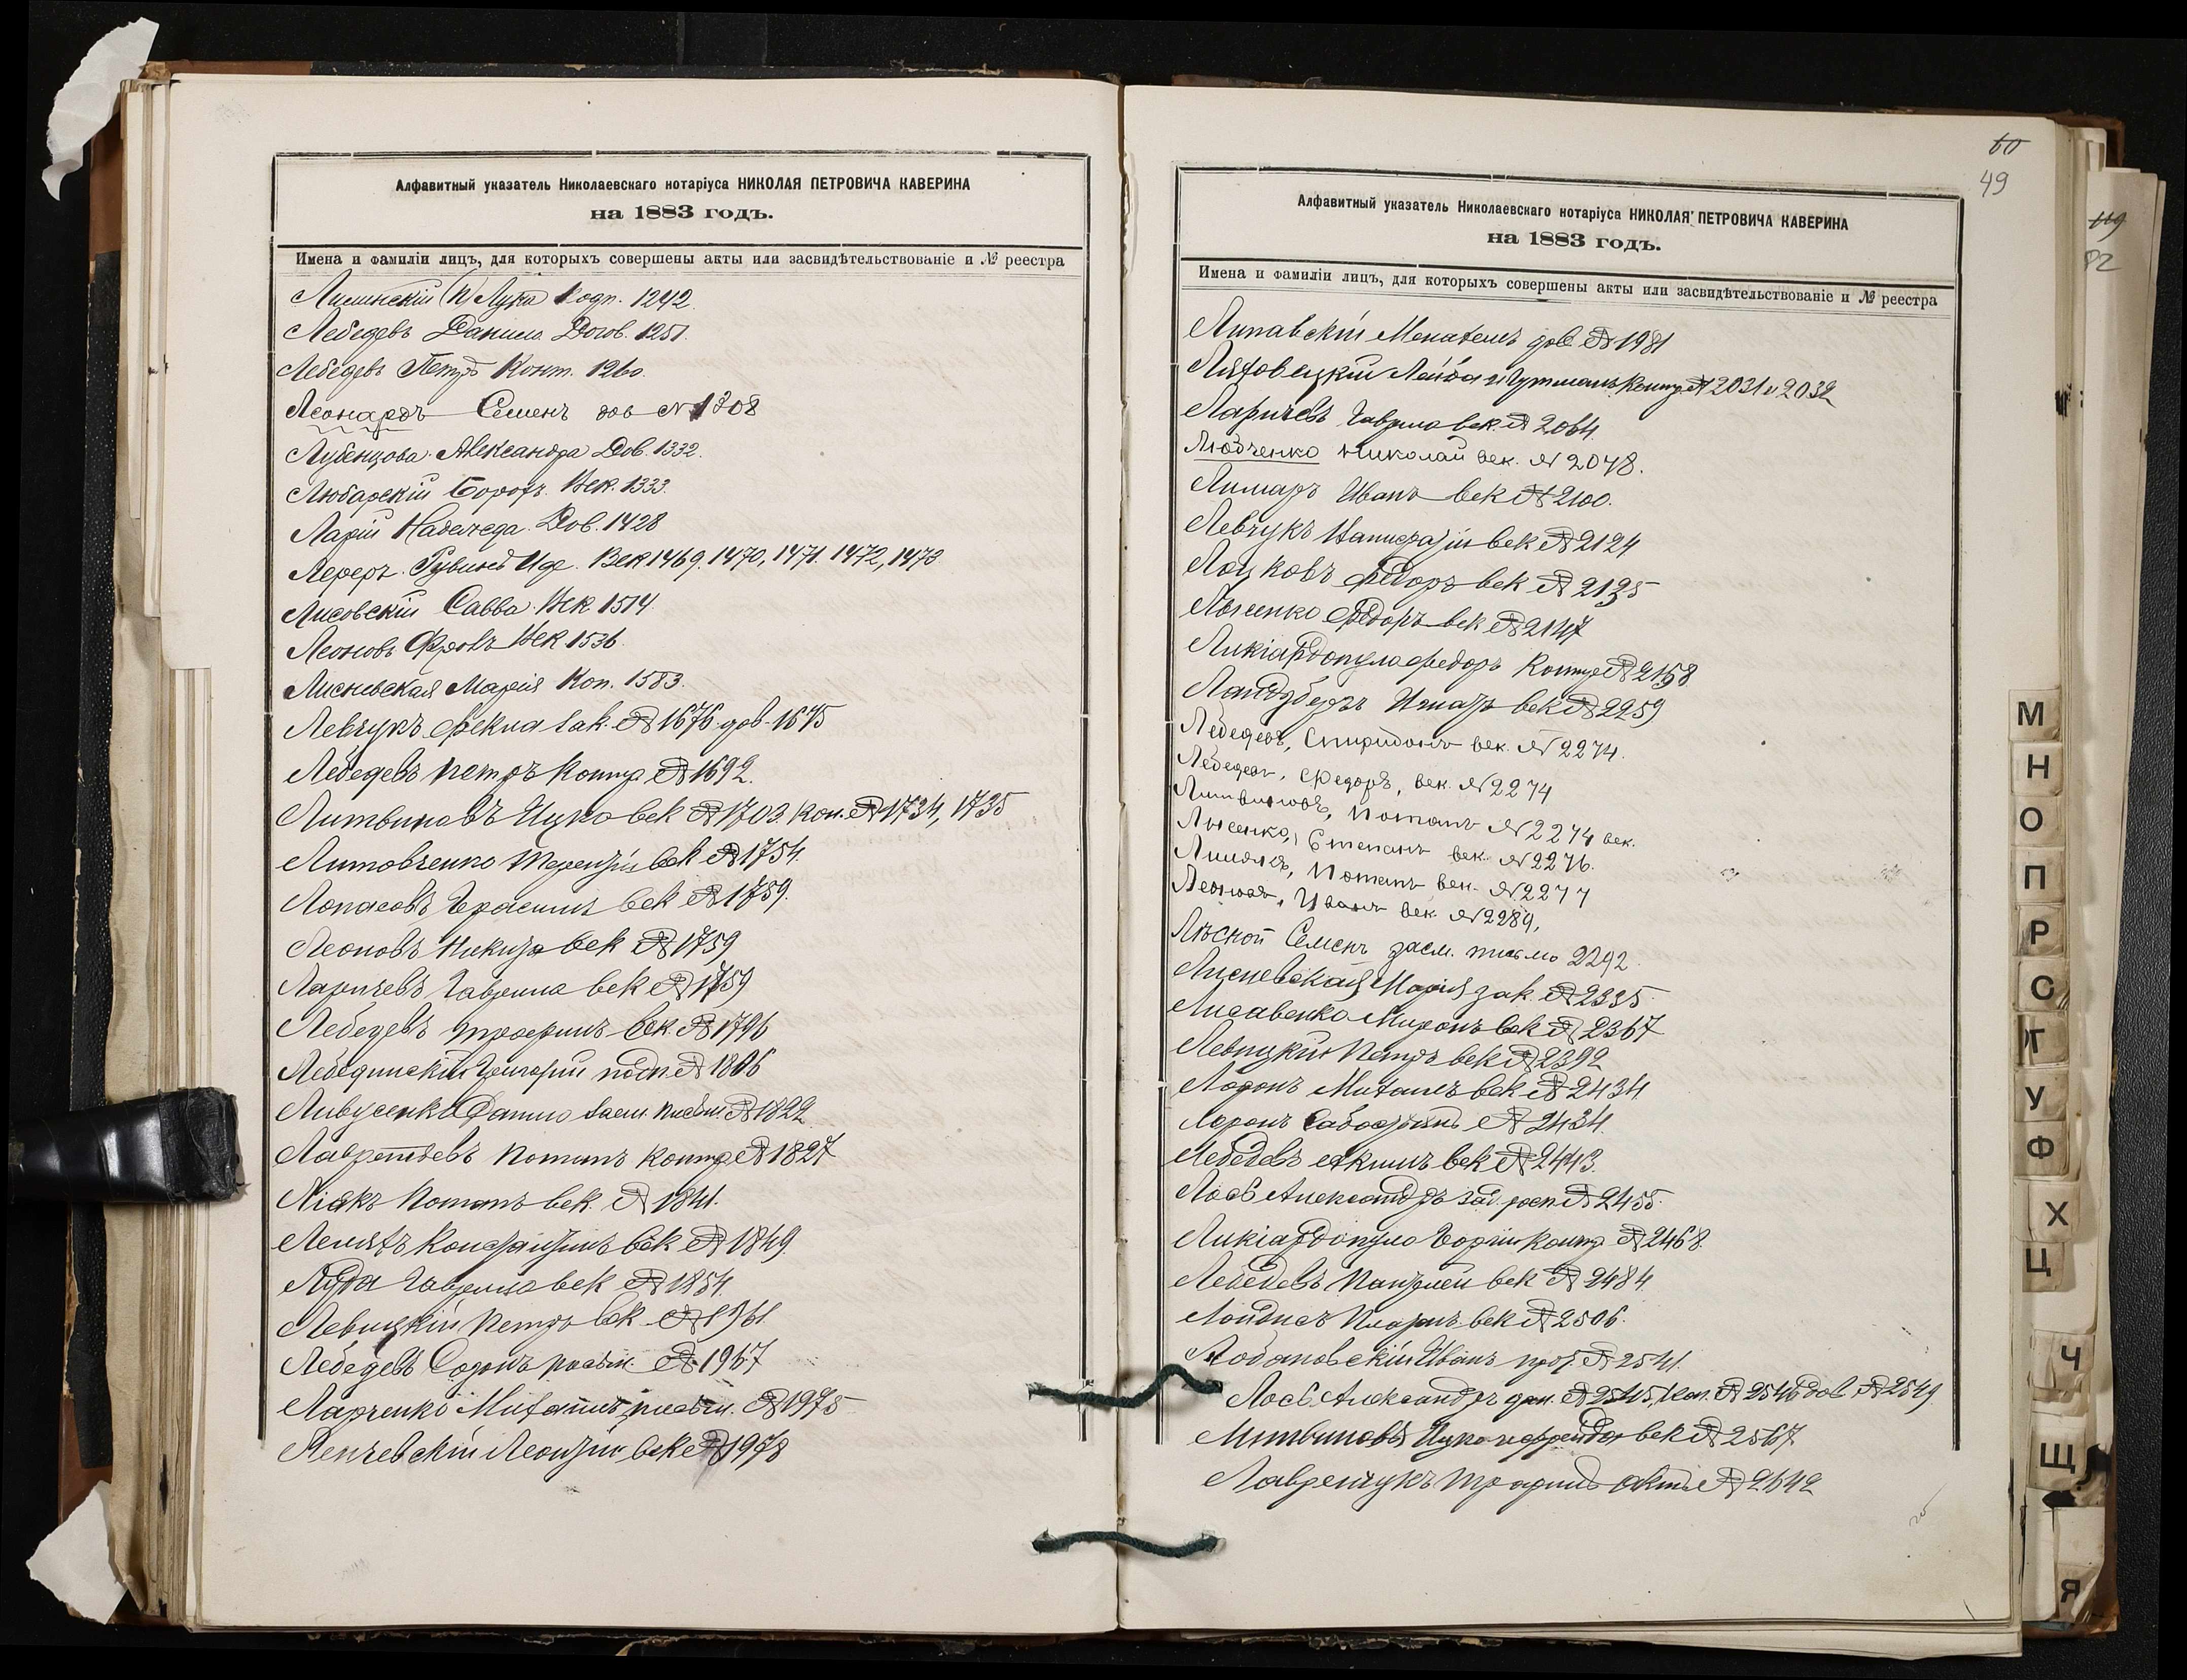 Алфавитный указатель Николаевскаго нотаріуса НИКОЛАЯ ПЕТРОВИЧА КАВЕРИНА
на 1883 годъ.
Имена и фамиліи лицъ, для которыхъ совершены акты или засвидѣтельствованіе и № реестра
Лука 1242
Лебедевъ Данило Догов. 1251.
Лебедевъ Петръ Конт. 1260.
Леонардъ Семенъ дов № 1308
Лубенцова Александра Дов. 1332.
Любарскій Борохъ. Век. 1333.
Ларій Надежда. Дов. 1428
Лереръ Рувинъ Иде. Век 1469, 1470, 1471. 1472, 1473.
Лисовскій Савва. Век. 1514.
Леоновъ Фролъ Век 1536.
Лисневская Марія Коп. 1583.
Левчукъ Фекла зак. № 1676 дов. 1675
Лебедевъ Петръ Контр № 1692.
Литвиновъ Ицко век № 1703 Коп. № 1734, 1735
Литовченко Терентій век № 1754.
Лопасовъ Герасимъ век № 1759.
Леоновъ Никита век № 1759
Ларичевъ Гаврила век № 1759
Лебедевъ Трофимъ век. № 1796
Лебединскій Григорій подп. № 1806
Данило заем. письм. № 1822
Лаврентьевъ Потапъ контр № 1827
Ліякъ Потапъ век. № 1841.
Лемехъ Константинъ век № 1849.
Луда Гаврило век № 1854.
Левицкій Петръ век № 1961
Лебедевъ № 1967
Ларченко Михаилъ письм. № 1975
Ленчевскій Леонтій век № 1978
60
49
Алфавитный указатель Николаевскаго нотаріуса НИКОЛАЯ ПЕТРОВИЧА КАВЕРИНА
на 1883 годъ.
Имена и фамиліи лицъ, для которыхъ совершены акты или засвидѣтельствованіе и № реестра
Липавскій дов № 1981
Ляховецкій Лейба и Гутманъ Контр. № 2031 и 2032
Ларичевъ Гаврила век. № 2064.
Любченко Николай век. № 2078.
Лимаръ Иванъ век № 2100.
Левчукъ век № 2124
Федоръ век № 2135
Лысенко Федоръ век № 2147
Ликіардопуло Федоръ Контр № 2158
Ландзбергъ век № 2259
Лебедевъ, Спиридонъ век. № 2274.
Лебедевъ, Федоръ, век. № 2274
Литвиновъ, Потапъ № 2274 век.
Лысенко, Степанъ век. № 2276.
Потапъ век. № 2277
Леоновъ, Иванъ век. № 2289,
Лѣсной Семенъ заем. письмо 2292
Лисневская Марія зак. № 2335.
Лисавенко Миронъ век № 2367
Левицкій Петръ век № 2392
Лоронъ Михаилъ век № 2434
Лоронъ № 2434.
Лебедевъ Екимъ век № 2443.
Лоевъ Александръ № 2455.
Ликіардопуло Георгій Контр № 2468.
Лебедевъ Пантелей век № 2484
век № 2506.
Лобановскій Иванъ прот. № 2541.
Лоевъ Александръ № 2545, Коп. № 2546 дов № 2549
Литвиновъ Ицко век № 2567
Лавренчукъ № 2642
119
82
М
Н
О
П
Р
С
Т
У
Ф
Х
Ц
Ч
Щ
Я